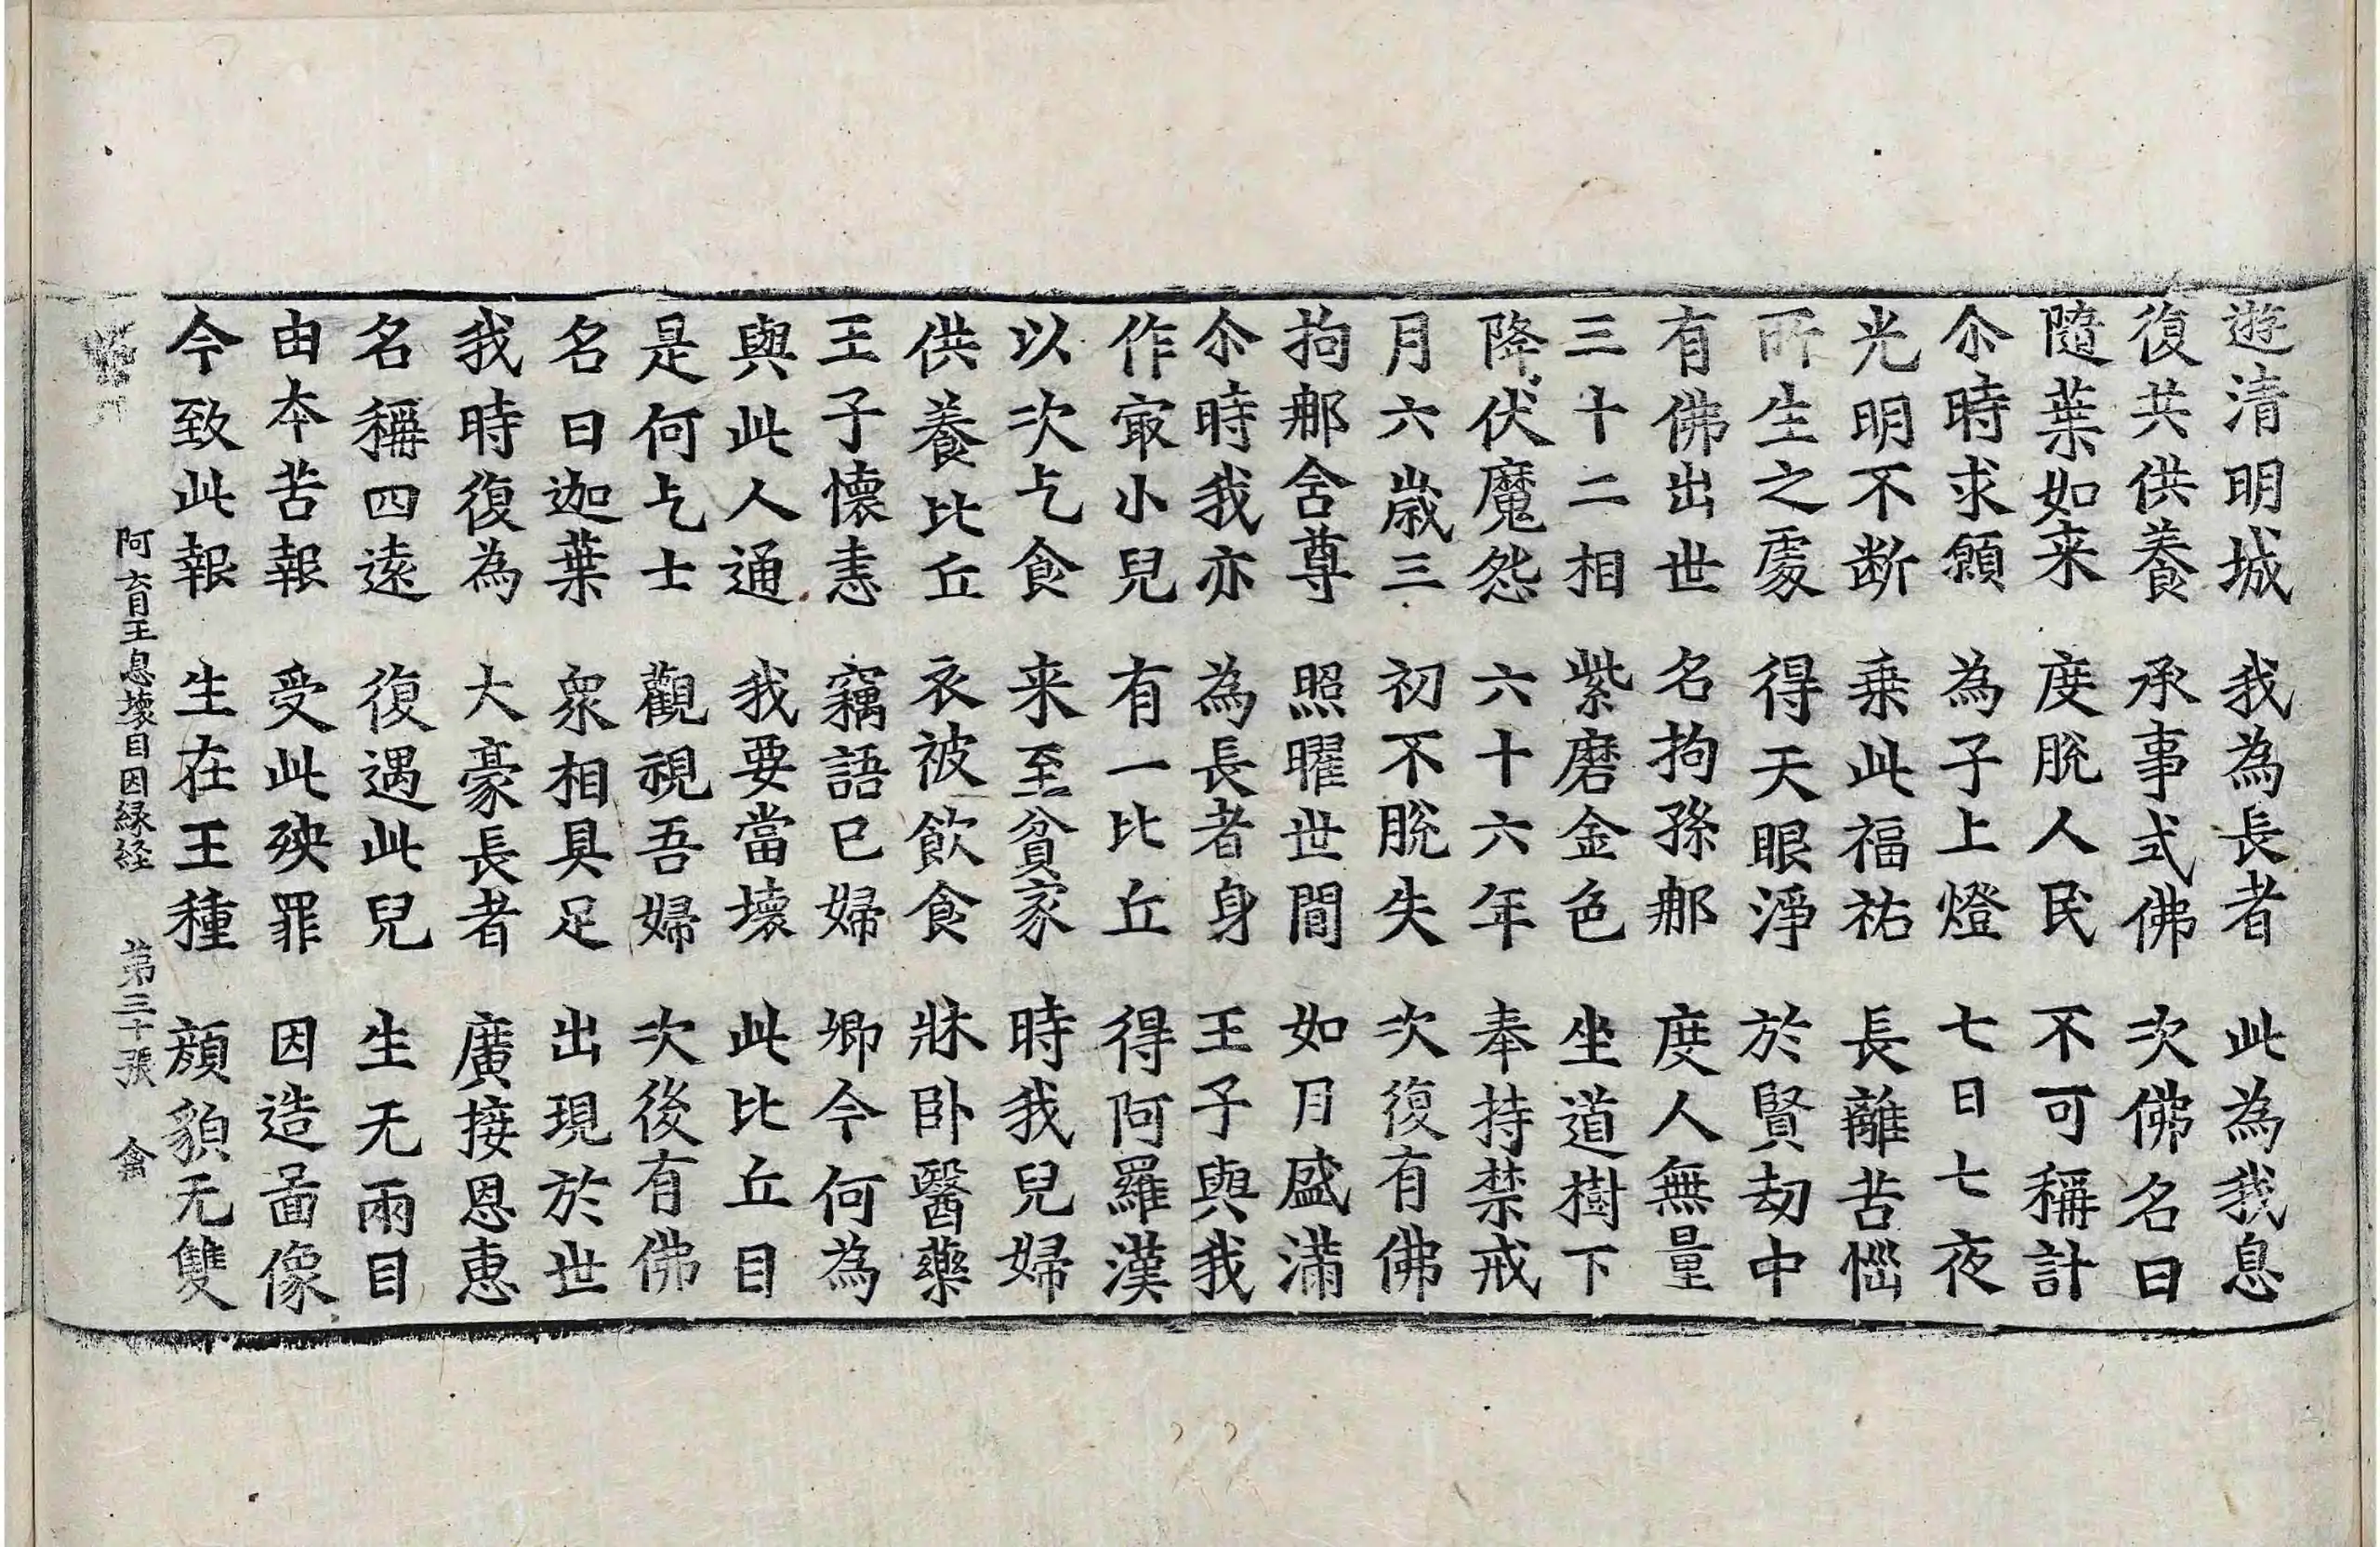 遊清明城　我為長者　此為我息
復共供養　承事式佛　次佛名曰
隨葉如来　度脫人民　不可稱計
尒時求願　為子上燈　七日七夜
光明不断　乗此福祐　長離苦惱
所生之處　得天眼淨　於賢劫中
有佛出世　名拘孫郍　度人無量
三十二相　紫磨金色　坐道樹下
降伏魔怨　六十六年　奉持禁戒
月六歳三　初不脫失　次復有佛
拘郍含尊　照曜世間　如月盛滿
尒時我亦　為長者身　王子與我
作㝡小兒　有一比丘　得阿羅漢
以次乞食　来至貧家　時我兒婦
供養比丘　衣被飲食　牀卧醫藥
王子懷恚　竊語已婦　卿今何為
與此人通　我要當壞　此比丘目
是何乞士　觀視吾婦　次後有佛
名曰迦葉　衆相具足　出現於世
我時復為　大豪長者　廣接恩惠
名稱四遠　復遇此兒　生无兩目
由本苦報　受此殃罪　因造啚像
今致此報　生在王種　顔貌无雙
阿育王息壞目因縁経　第三十張　禽